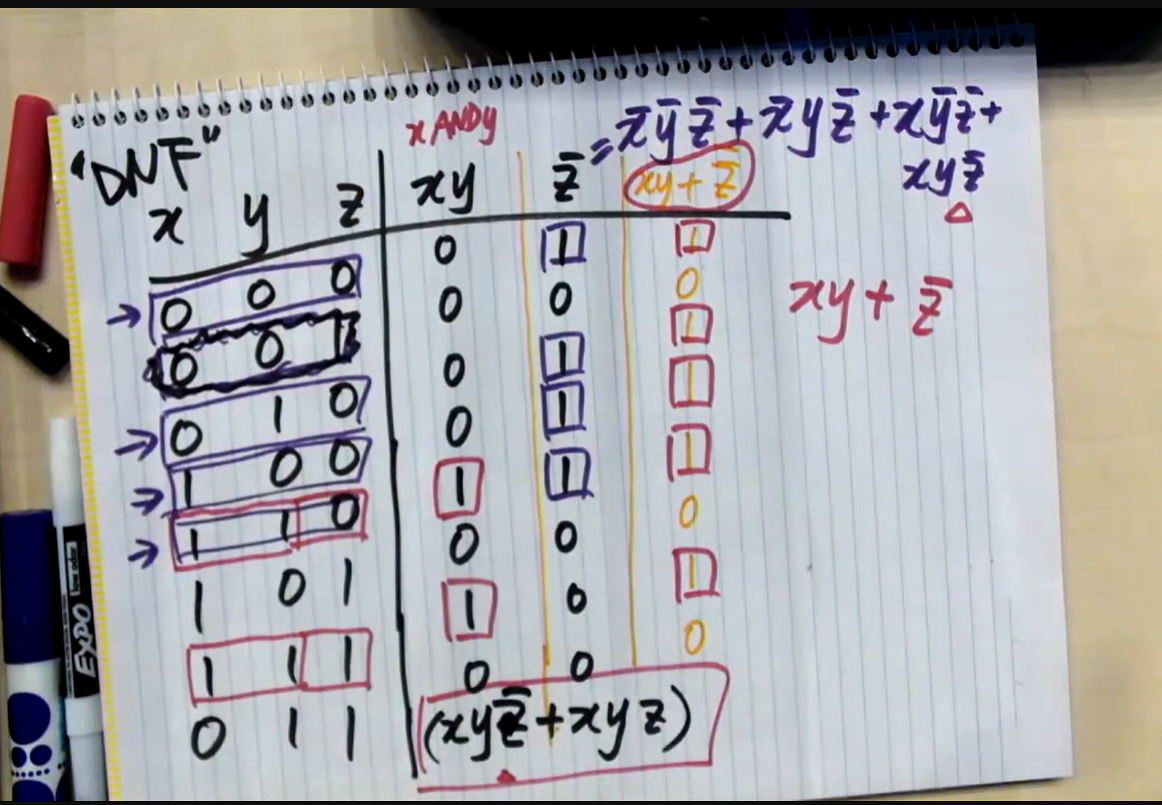 "DNF"
x ANDy
= x̄ȳz̄ + x̄yz̄ + xȳz̄ +
xyz̄
x y z | xy z̄ xy + z̄
0 0 0 | 0 1 1
0 0 1 | 0 0 0
0 1 0 | 0 1 1
1 0 0 | 0 1 1
1 1 0 | 1 1 1
1 0 1 | 0 0 0
1 1 1 | 1 0 1
0 1 1 | 0 0 0
xy + z̄
(xyz̄ + xyz)
EXPO
low odor